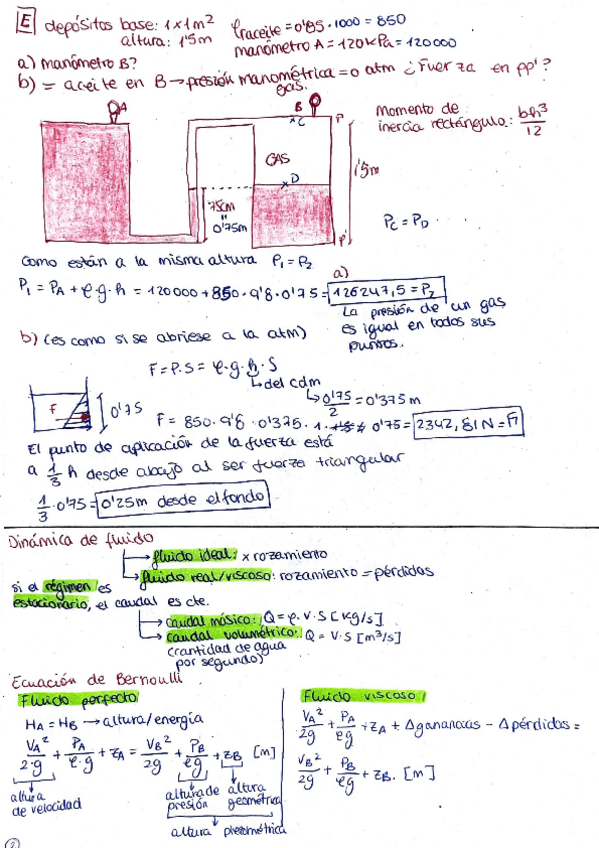 E depósitos base: 1x1m² ρaceite=0'85·1000=850
altura: 1'5m manómetro A=120kPa=120000
a) manómetro B?
b) = aceite en B → presión manométrica=0 atm ¿Fuerza en pp'?
gas.
A
B
C
P
Momento de
inercia rectángulo: bh³/12
GAS
D
1'5m
75cm
=
0'75m
P'
Pc = PD
Como están a la misma altura P₁=P₂
a)
P₁ = PA + ρ·g·h = 120000+850·9'8·0'75= 126247,5 = P₂
La presión de un gas
es igual en todos sus
puntos.
b) (es como si se abriese a la atm)
F=P·S= ρ·g·h·S
↳ del cdm
↳ 0'75/2 = 0'375m
F
0'75
F = 850·9'8·0'375·1·0'75= 2342,81N=F
El punto de aplicación de la fuerza está
a 1/3 h desde abajo al ser fuerza triangular
1/3·0'75= 0'25m desde el fondo
Dinámica de fluido
→ fluido ideal: x rozamiento
→ fluido real/viscoso: rozamiento = pérdidas
si el régimen es
estacionario, el caudal es cte.
→ caudal másico: Q=ρ·v·S [kg/s]
→ caudal volumétrico: Q = v·S [m³/s]
(cantidad de agua
por segundo)
Ecuación de Bernoulli
Fluido perfecto
HA = HB → altura/energía
VA²/2·g + PA/ρ·g + zA = VB²/2g + PB/ρg + zB [m]
altura de velocidad
altura de presión
altura geométrica
altura piezométrica
Fluido viscoso
VA²/2g + PA/ρg + zA + Δganancias - Δpérdidas =
VB²/2g + PB/ρg + zB. [m]
2